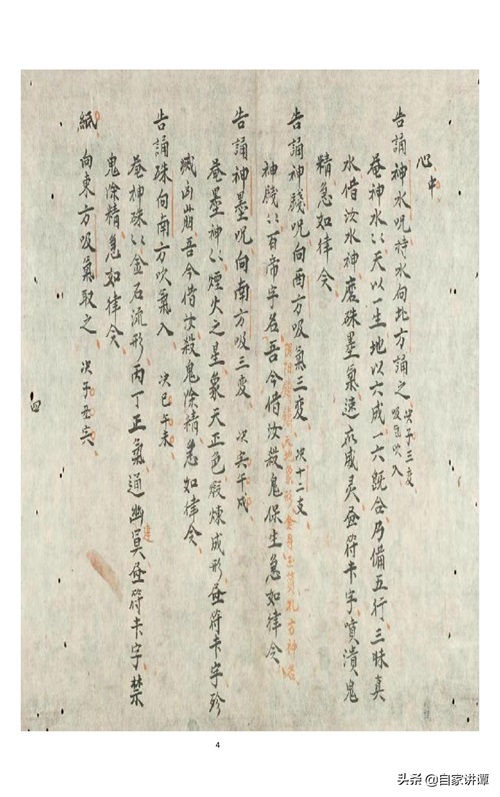 心中
告誦神水呪持水向北方誦之 次子三变
吸氣吹入
奄神水〻天以一生地以六成一六既合乃備五行三昧真
水借汝水神磨硃墨氣速成灵昼符卡字噴潰鬼
精急如律令
告誦神牋呪向西方吸氣三变 次十二支
天地象形金身玉質方神
神牋〻百帝字名吾今借汝殺鬼保生急如律令
告誦神墨呪向南方吸三变 次亥午戌
奄墨神〻煙火之星象天正色煅煉成形昼符卡字殄
滅凶吾今借汝殺鬼除精急如律令
告誦硃向南方吹氣入 次巳午未
達
奄神硃〻金石流形丙丁正氣通幽冥昼符卡字禁
鬼除精急如律令
紙 向東方吸氣取之 次子丑亥
四
4
头条 @自家讲谭